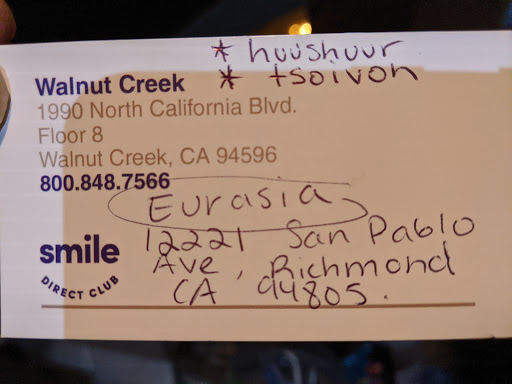 * huushuur
* tsoivon
Walnut Creek
1990 North California Blvd.
Floor 8
Walnut Creek, CA 94596
800.848.7566
Eurasia
12221 San Pablo
Ave, Richmond
CA 94805.
smile
DIRECT CLUB